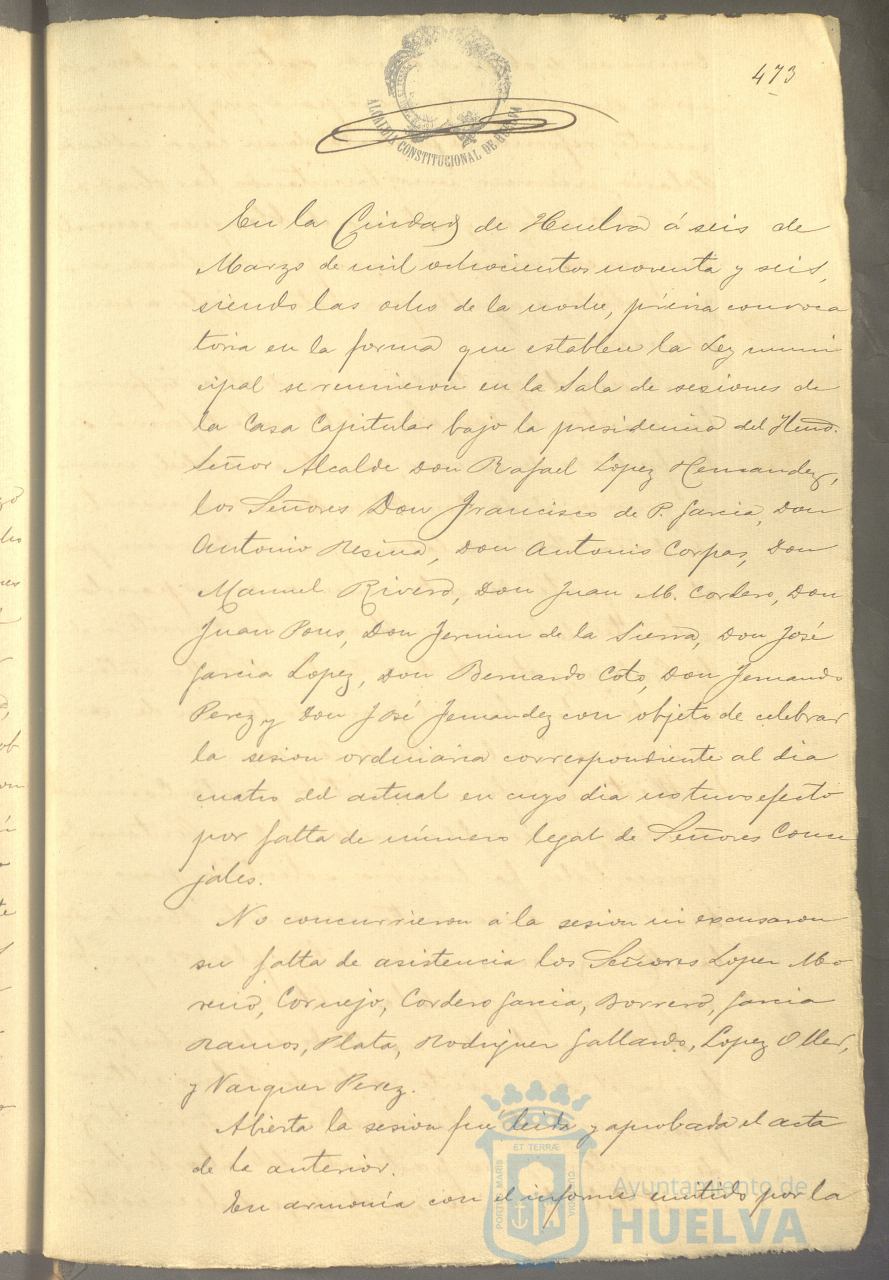 473
ALCALDIA CONSTITUCIONAL DE HUELVA
En la Ciudad de Huelva á seis de
Marzo de mil ochocientos noventa y seis,
siendo las ocho de la noche, prévia convoca
toria en la forma que establece la Ley muni
cipal se reunieron en la Sala de sesiones de
la Casa Capitular bajo la presidencia del
Señor Alcalde Don Rafael Lopez Hernandez,
los Señores Don Francisco de P. Garcia, Don
Antonio Resina, Don Antonio Corpas, Don
Manuel Rivero, Don Juan M. Cordero, Don
Juan Pons, Don Fermin de la Sierra, Don José
Garcia Lopez, Don Bernardo Coto, Don Fernando
Perez y Don José Fernandez con objeto de celebrar
la sesion ordinaria correspondiente al dia
cuatro del actual en cuyo dia no tuvo efecto
por falta de número legal de Señores Conce
jales.
No concurrieron á la sesion ni excusaron
su falta de asistencia los Señores Lopez Mo-
reno, Cornejo, Cordero Garcia, Borrero, Garcia
Ramos, Plata, Rodriguez Gallardo, Lopez Oller,
y Vazquez Perez.
Abierta la sesion fué leida y aprobada el acta
de la anterior.
En armonía con el informe emitido por la
PORTUS MARIS ET TERRÆ CUSTODIA
Ayuntamiento de
HUELVA